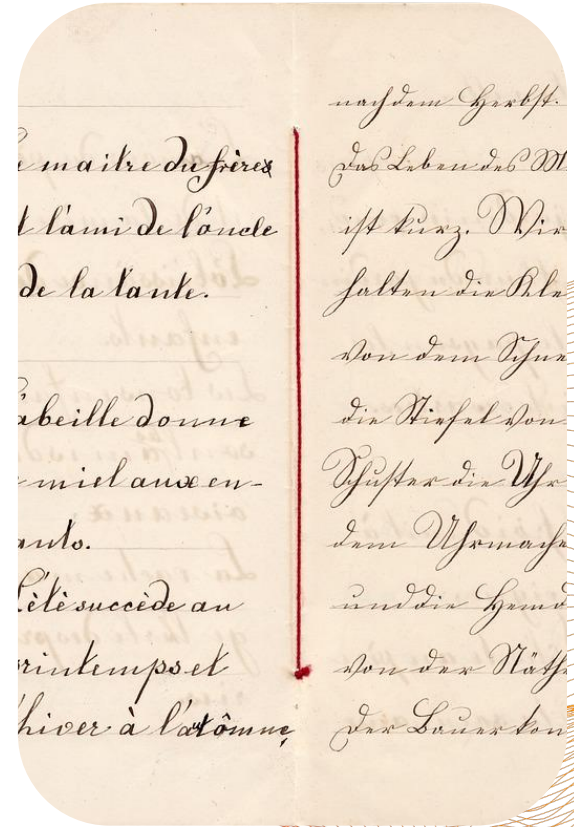 maitre du frère
t l'ami de l'oncle
de la tante.
abeille donne
miel aux en-
ants.
L'été succède au
rintemps et
hiver à
nach dem Herbst.
Das Leben des M
ist kurz. Wir
halten die Kle
von dem Schne
die Stiefel von
Schuster die Uhr
dem Uhrmache
und die Hemd
von der Näth
Der Bauer kon